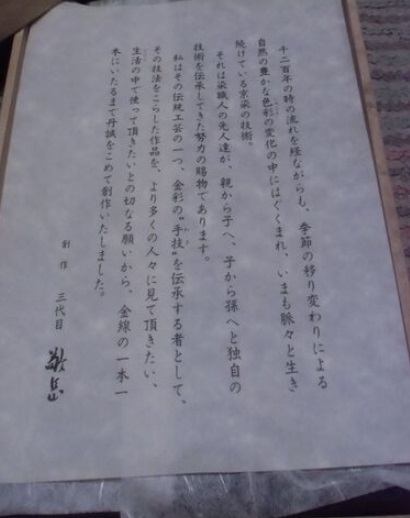 千二百年の時の流れを経ながらも、季節の移り変わりによる
自然の豊かな色彩の変化の中にはぐくまれ、いまも脈々と生き
続けている京染の技術。
それは染職人の先人達が、親から子へ、子から孫へと独自の
技術を伝承してきた努力の賜物であります。
私はその伝統工芸の一つ、金彩の〝手技〟を伝承する者として、
その技法をこらした作品を、より多くの人々に見て頂きたい、
生活の中で使って頂きたいとの切なる願いから、金線の一本一
本にいたるまで丹誠をこめて創作いたしました。
創作 三代目